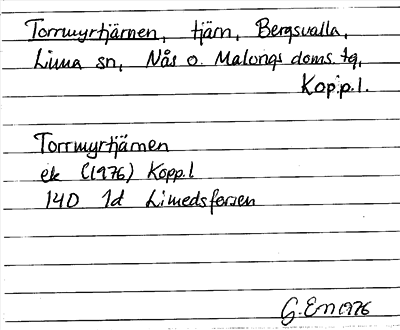 Torrmyrtjärnen, tjärn, Bergsvalla,
Lima sn, Nås o. Malungs doms. tg,
Kop.p.l.
Torrmyrtjärnen
ek (1976) Kopp.l
14D 1d Limedsforsen
G. Em 1976